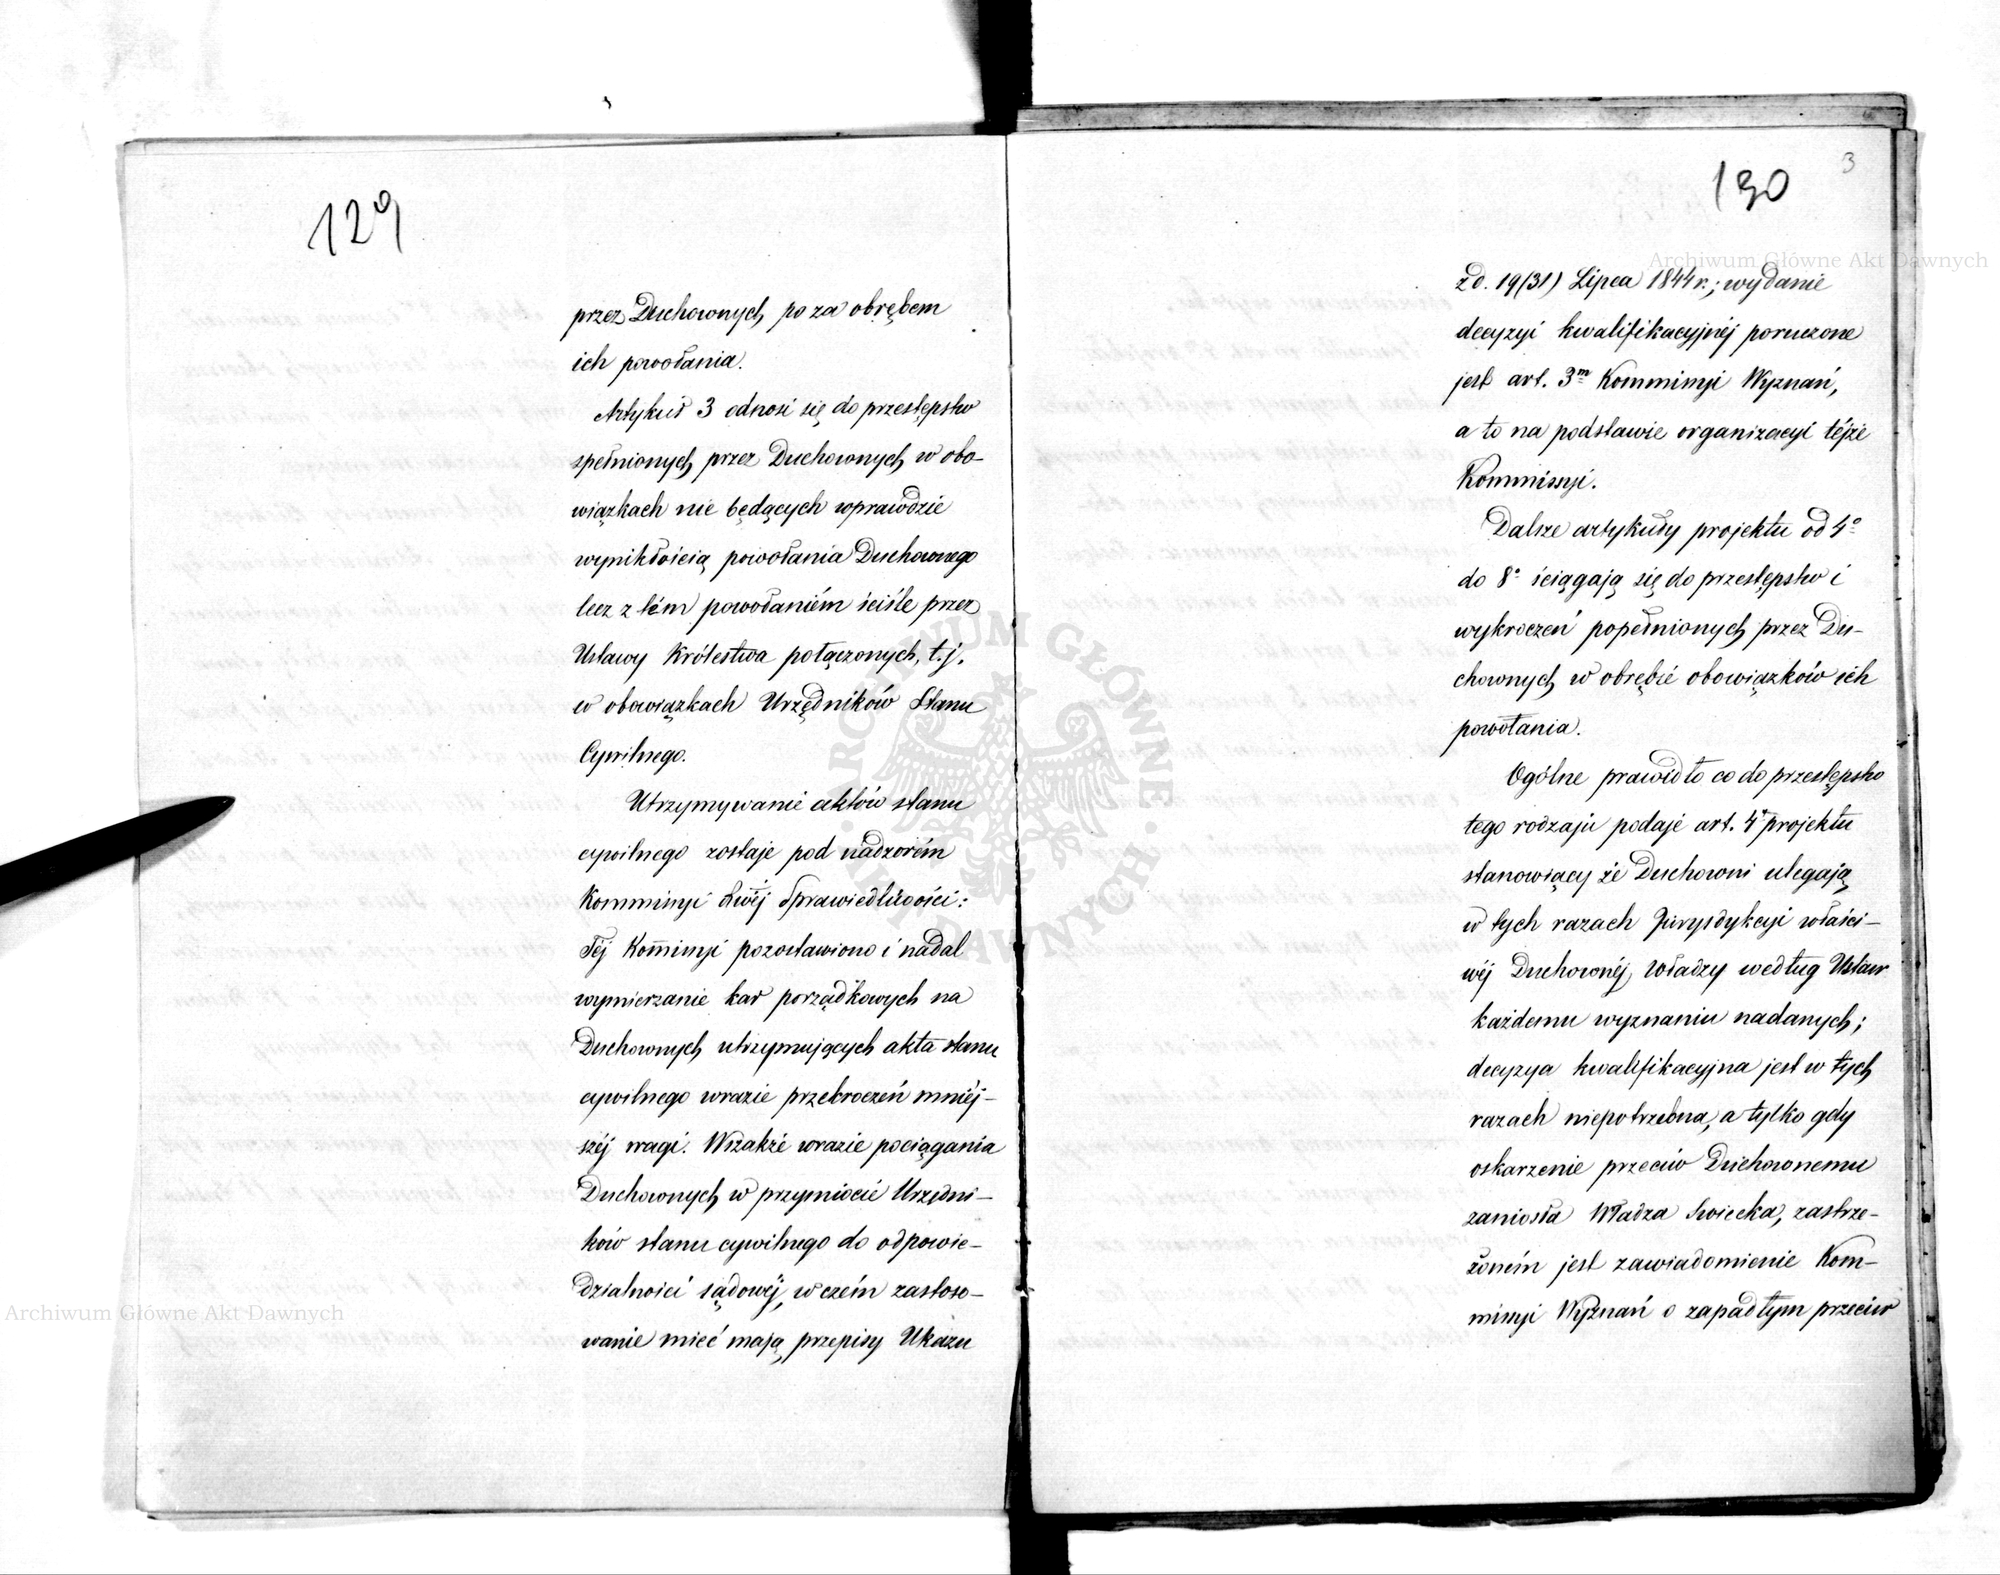 129
przez Duchownych po za obrębem
ich powołania.
Artykuł 3 odnosi się do przestępstw
spełnionych przez Duchownych w obo-
wiązkach nie będących wprawdzie
wynikłością powołania Duchownego
lecz z tém powołaniém ściśle przez
Ustawy Królestwa połączonych, t.j.
w obowiązkach Urzędników Stanu
Cywilnego.
Utrzymywanie aktów stanu
cywilnego zostaje pod nadzorém
Kommissyi Sprawiedliwości:
Téj Kom̄issyi pozostawiono i nadal
wymierzanie kar porządkowych na
Duchownych utrzymujących akta stanu
cywilnego wrazie przekroczeń mniéj-
széj wagi. Wszakże wrazie pociągania
Duchownych w przymiocie Urzędni-
ków stanu cywilnego do odpowie-
dzialności sądowéj, w czém zastoso-
wanie mieć mają przepisy Ukazu
3
130
z d. 19(31) Lipca 1844 r.; wydanie
decyzyi kwalifikacyjnéj poruczone
jest art. 3m Kommissyi Wyznań,
a to na podstawie organizacyi téjże
Kommissyi.
Dalsze artykuły projektu od 4o
do 8o ściągają się do przestępstw i
wykroczeń popełnionych przez Du-
chownych w obrębie obowiązków ich
powołania.
Ogólne prawidło co do przestępstw
tego rodzaju podaje art. 4y projektu
stanowiący że Duchowni ulegają
w tych razach Jurysdykcyi właści-
wéj Duchownéj Władzy według Ustaw
każdemu wyznaniu nadanych;
decyzya kwalifikacyjna jest w tych
razach niepotrzebna, a tylko gdy
oskarzenie przeciw Duchownemu
zaniosła Władza Swiecka, zastrze-
żoném jest zawiadomienie Kom-
missyi Wyznań o zapadłym przeciw
Archiwum Główne Akt Dawnych
Archiwum Główne Akt Dawnych
ARCHIWUM GŁÓWNE AKT DAWNYCH